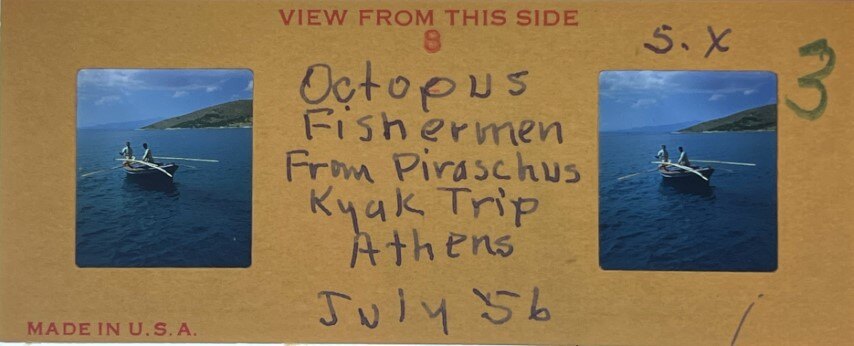 VIEW FROM THIS SIDE
8
S. X
3
Octopus
Fishermen
From Piraschus
Kyak Trip
Athens
July '56
MADE IN U.S.A.